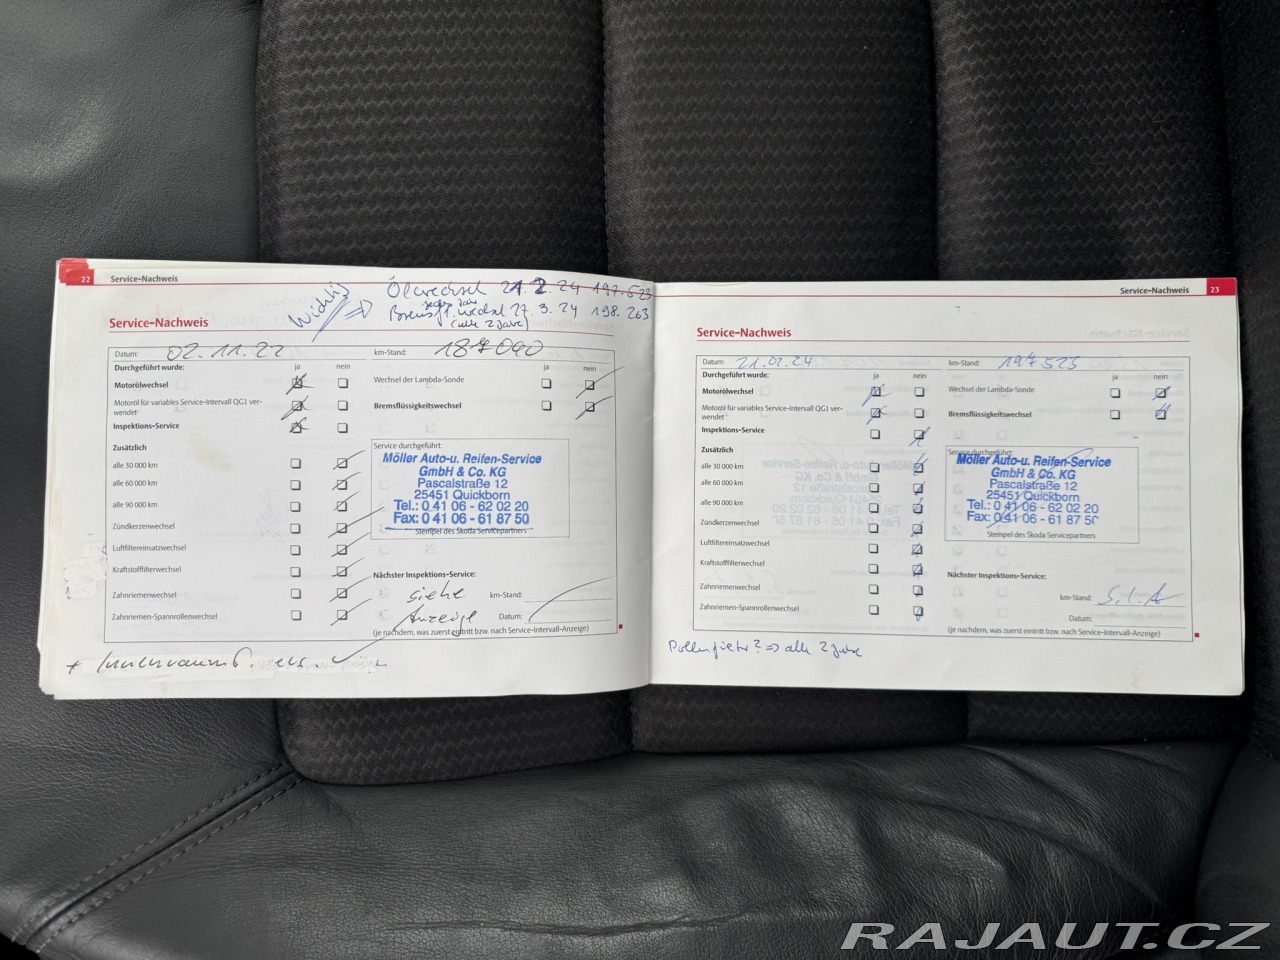 22 Service-Nachweis
Wichtig => Ölwechsel 21. 2. 24 197.523
27. 3. 24 198.263
(alle 2 Jahre)
Service-Nachweis
Datum: 02.11.22 km-Stand: 187090
Durchgeführt wurde: ja nein ja nein
Motorölwechsel
Wechsel der Lambda-Sonde
Motoröl für variables Service-Intervall QG1 ver-
wendet
Bremsflüssigkeitswechsel
Inspektions-Service
Zusätzlich
alle 30 000 km
alle 60 000 km
alle 90 000 km
Zündkerzenwechsel
Luftfiltereinsatzwechsel
Kraftstofffilterwechsel
Zahnriemenwechsel
Zahnriemen-Spannrollenwechsel
Service durchgeführt:
Möller Auto-u. Reifen-Service
GmbH & Co. KG
Pascalstraße 12
25451 Quickborn
Tel.: 0 41 06 - 62 02 20
Fax: 0 41 06 - 61 87 50
Stempel des Skoda Servicepartners
Nächster Inspektions-Service:
siehe km-Stand:
Anzeige Datum:
(je nachdem, was zuerst eintritt bzw. nach Service-Intervall-Anzeige)
Service-Nachweis 23
Service-Nachweis
Datum: 21.02.24 km-Stand: 197525
Durchgeführt wurde: ja nein ja nein
Motorölwechsel
Wechsel der Lambda-Sonde
Motoröl für variables Service-Intervall QG1 ver-
wendet
Bremsflüssigkeitswechsel
Inspektions-Service
Zusätzlich
alle 30 000 km
alle 60 000 km
alle 90 000 km
Zündkerzenwechsel
Luftfiltereinsatzwechsel
Kraftstofffilterwechsel
Zahnriemenwechsel
Zahnriemen-Spannrollenwechsel
Service durchgeführt:
Möller Auto-u. Reifen-Service
GmbH & Co. KG
Pascalstraße 12
25451 Quickborn
Tel.: 0 41 06 - 62 02 20
Fax: 0 41 06 - 61 87 50
Stempel des Skoda Servicepartners
Nächster Inspektions-Service:
km-Stand: S.i.A
Datum:
(je nachdem, was zuerst eintritt bzw. nach Service-Intervall-Anzeige)
Pollenfilter? => alle 2 Jahre
RAJAUT.CZ